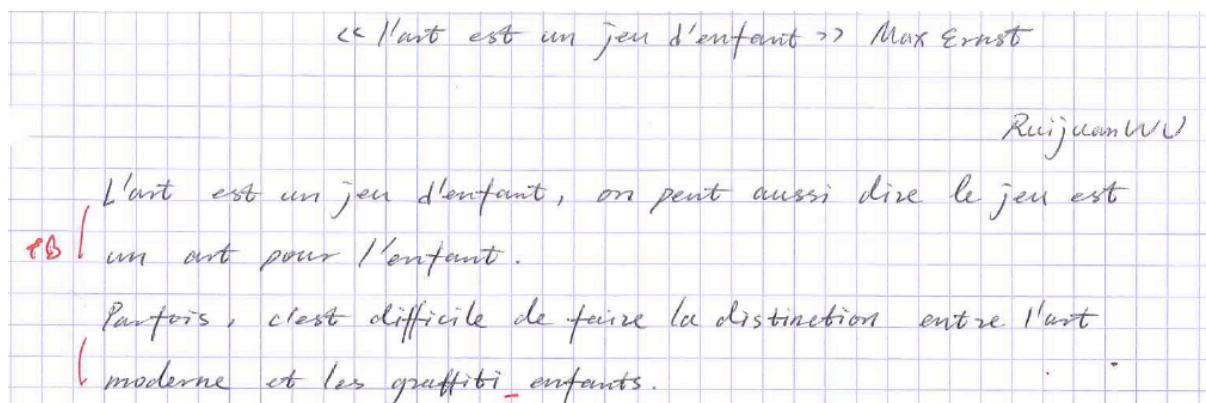 << l'art est un jeu d'enfant >> Max Ernst
Ruijuan WU
L'art est un jeu d'enfant, on peut aussi dire le jeu est
TB un art pour l'enfant.
Parfois, c'est difficile de faire la distinction entre l'art
moderne et les graffiti_enfants.